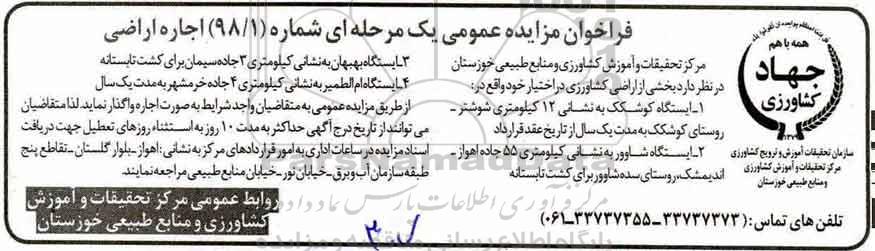 فراخوان مزایده عمومی یک مرحله ای شماره (۹۸/۱) اجاره اراضی
همه با هم
جهاد
کشاورزی
سازمان تحقیقات آموزش و ترویج کشاورزی
مرکز تحقیقات و آموزش کشاورزی
و منابع طبیعی خوزستان
مرکز تحقیقات و آموزش کشاورزی و منابع طبیعی خوزستان
در نظر دارد بخشی از اراضی کشاورزی در اختیار خود واقع در:
۱ـ ایستگاه کوشکک به نشانی ۱۲ کیلومتری شوشتر ـ
روستای کوشکک به مدت یک سال از تاریخ عقد قرارداد
۲ـ ایستگاه شاوور به نشانی کیلومتری ۵۵ جاده اهواز ـ
اندیمشک، روستای سده شاوور برای کشت تابستانه
۳ـ ایستگاه بهبهان به نشانی کیلومتری ۳ جاده سیمان برای کشت تابستانه
۴ـ ایستگاه ام الطمیر به نشانی کیلومتری ۴ جاده خرمشهر به مدت یک سال
از طریق مزایده عمومی به متقاضیان واجد شرایط به صورت اجاره واگذار نماید. لذا متقاضیان
می توانند از تاریخ درج آگهی حداکثر به مدت ۱۰ روز به استثناء روزهای تعطیل جهت دریافت
اسناد مزایده در ساعات اداری به امور قراردادهای مرکز به نشانی: اهواز ـ بلوار گلستان ـ تقاطع پنج
طبقه سازمان آب و برق ـ خیابان نور ـ خیابان منابع طبیعی مراجعه نمایند.
تلفن های تماس: (۳۳۷۳۷۳۷۳ ـ ۳۳۷۳۷۳۵۵ ـ ۰۶۱)
روابط عمومی مرکز تحقیقات و آموزش
کشاورزی و منابع طبیعی خوزستان
ParsNamadData
مرکز فرآوری اطلاعات پارس نماد داده ها